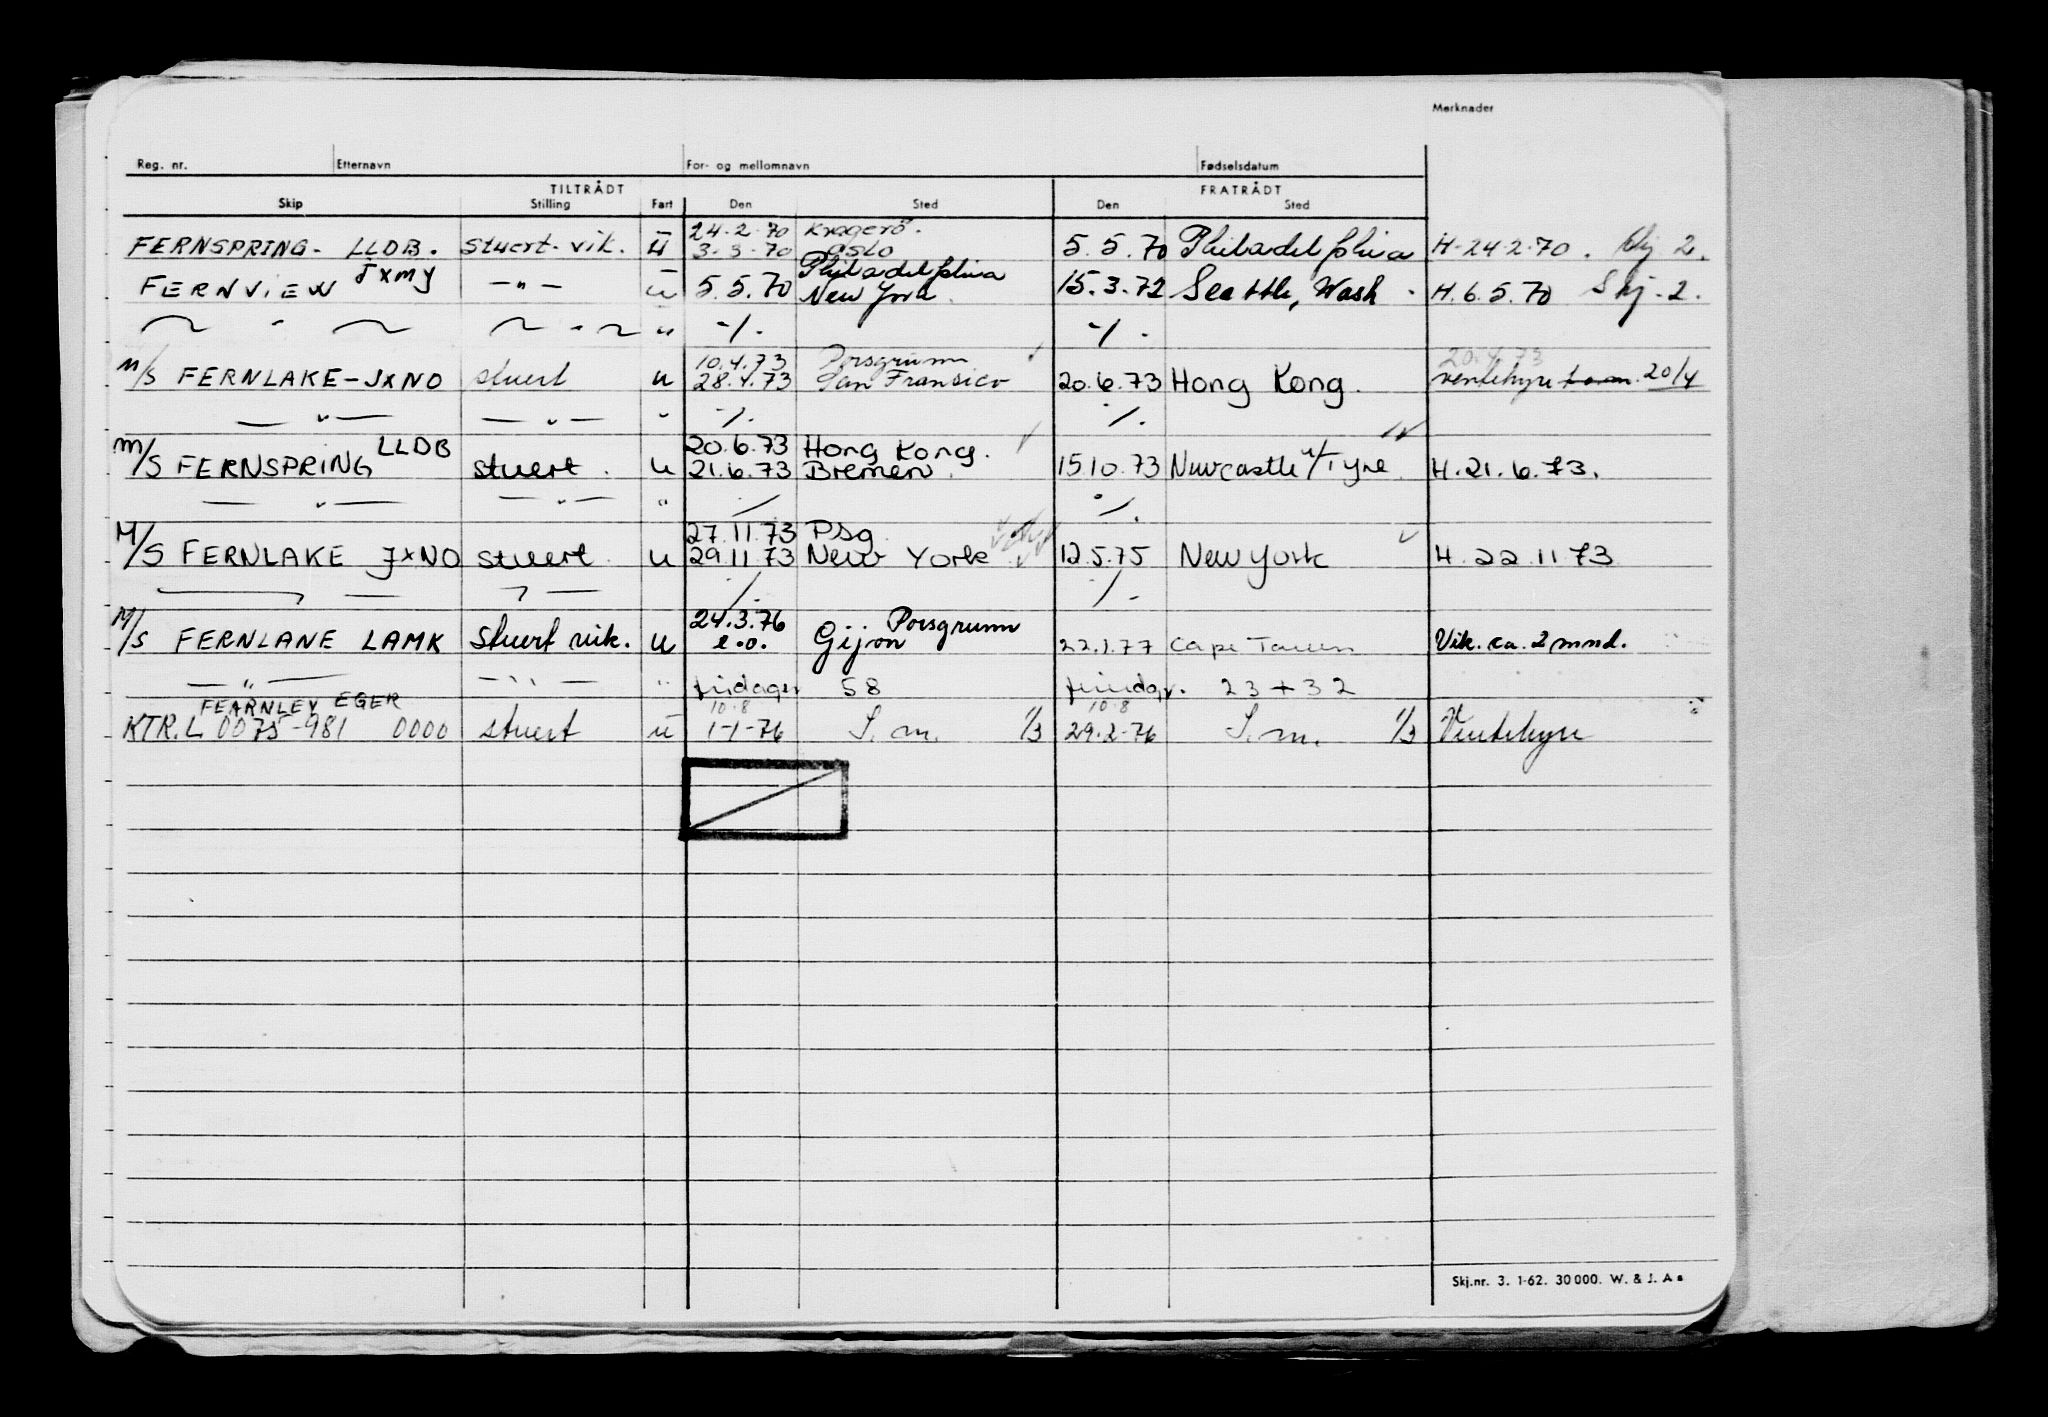 Merknader
Reg. nr. Etternavn For- og mellomnavn Fødselsdatum
TILTRÅDT FRATRÅDT
Skip Stilling Fart Den Sted Den Sted
24.2.70 Kragerö.
FERNSPRING- LLDB. stuert-vik. u 3-3-70 Oslo 5.5.70 Philadelphia H-24-2-70. Skj 2.
JXMY Philadelphia
FERNVIEW -"- u 5.5.70 New York. 15.3.72 Seattle, Wash. H.6.5.70 Skj-2.
" " " -/. -/.
10.4.73 Porsgrunn 20.4.73
M/S FERNLAKE-JXNO stuert u 28.4.73 San Fransico 20.6.73 Hong Kong. ventehyre 20/4
—"— —"— " ·/. ·/.
LLDB 20.6.73 Hong Kong.
M/S FERNSPRING stuert. u 21.6.73 Bremen. 15.10.73 Newcastle u/Tyne. H.21.6.73.
—"— —"— " ·/. ·/.
27.11.73 Psg.
M/S FERNLAKE JXNO stuert. u 29.11.73 New York 12.5.75 New York H. 22.11.73
·/. ·/.
24.3.76 Porsgrunn
M/S FERNLANE LAMK Stuert vik. u e.o. Gijon 22.1.77 Cape Town Vik. ca. 2 mnd.
—"— —"— " fridager 58 fridgr. 23 + 32
FEARNLEY EGER 10.8 10.8
KTR.L 0075-981 0000 stuert u 1-1-76 S.m. 1/3 29.2-76 S.m. 1/3 Ventehyre
Skj.nr. 3. 1-62. 30 000. W. & J. As